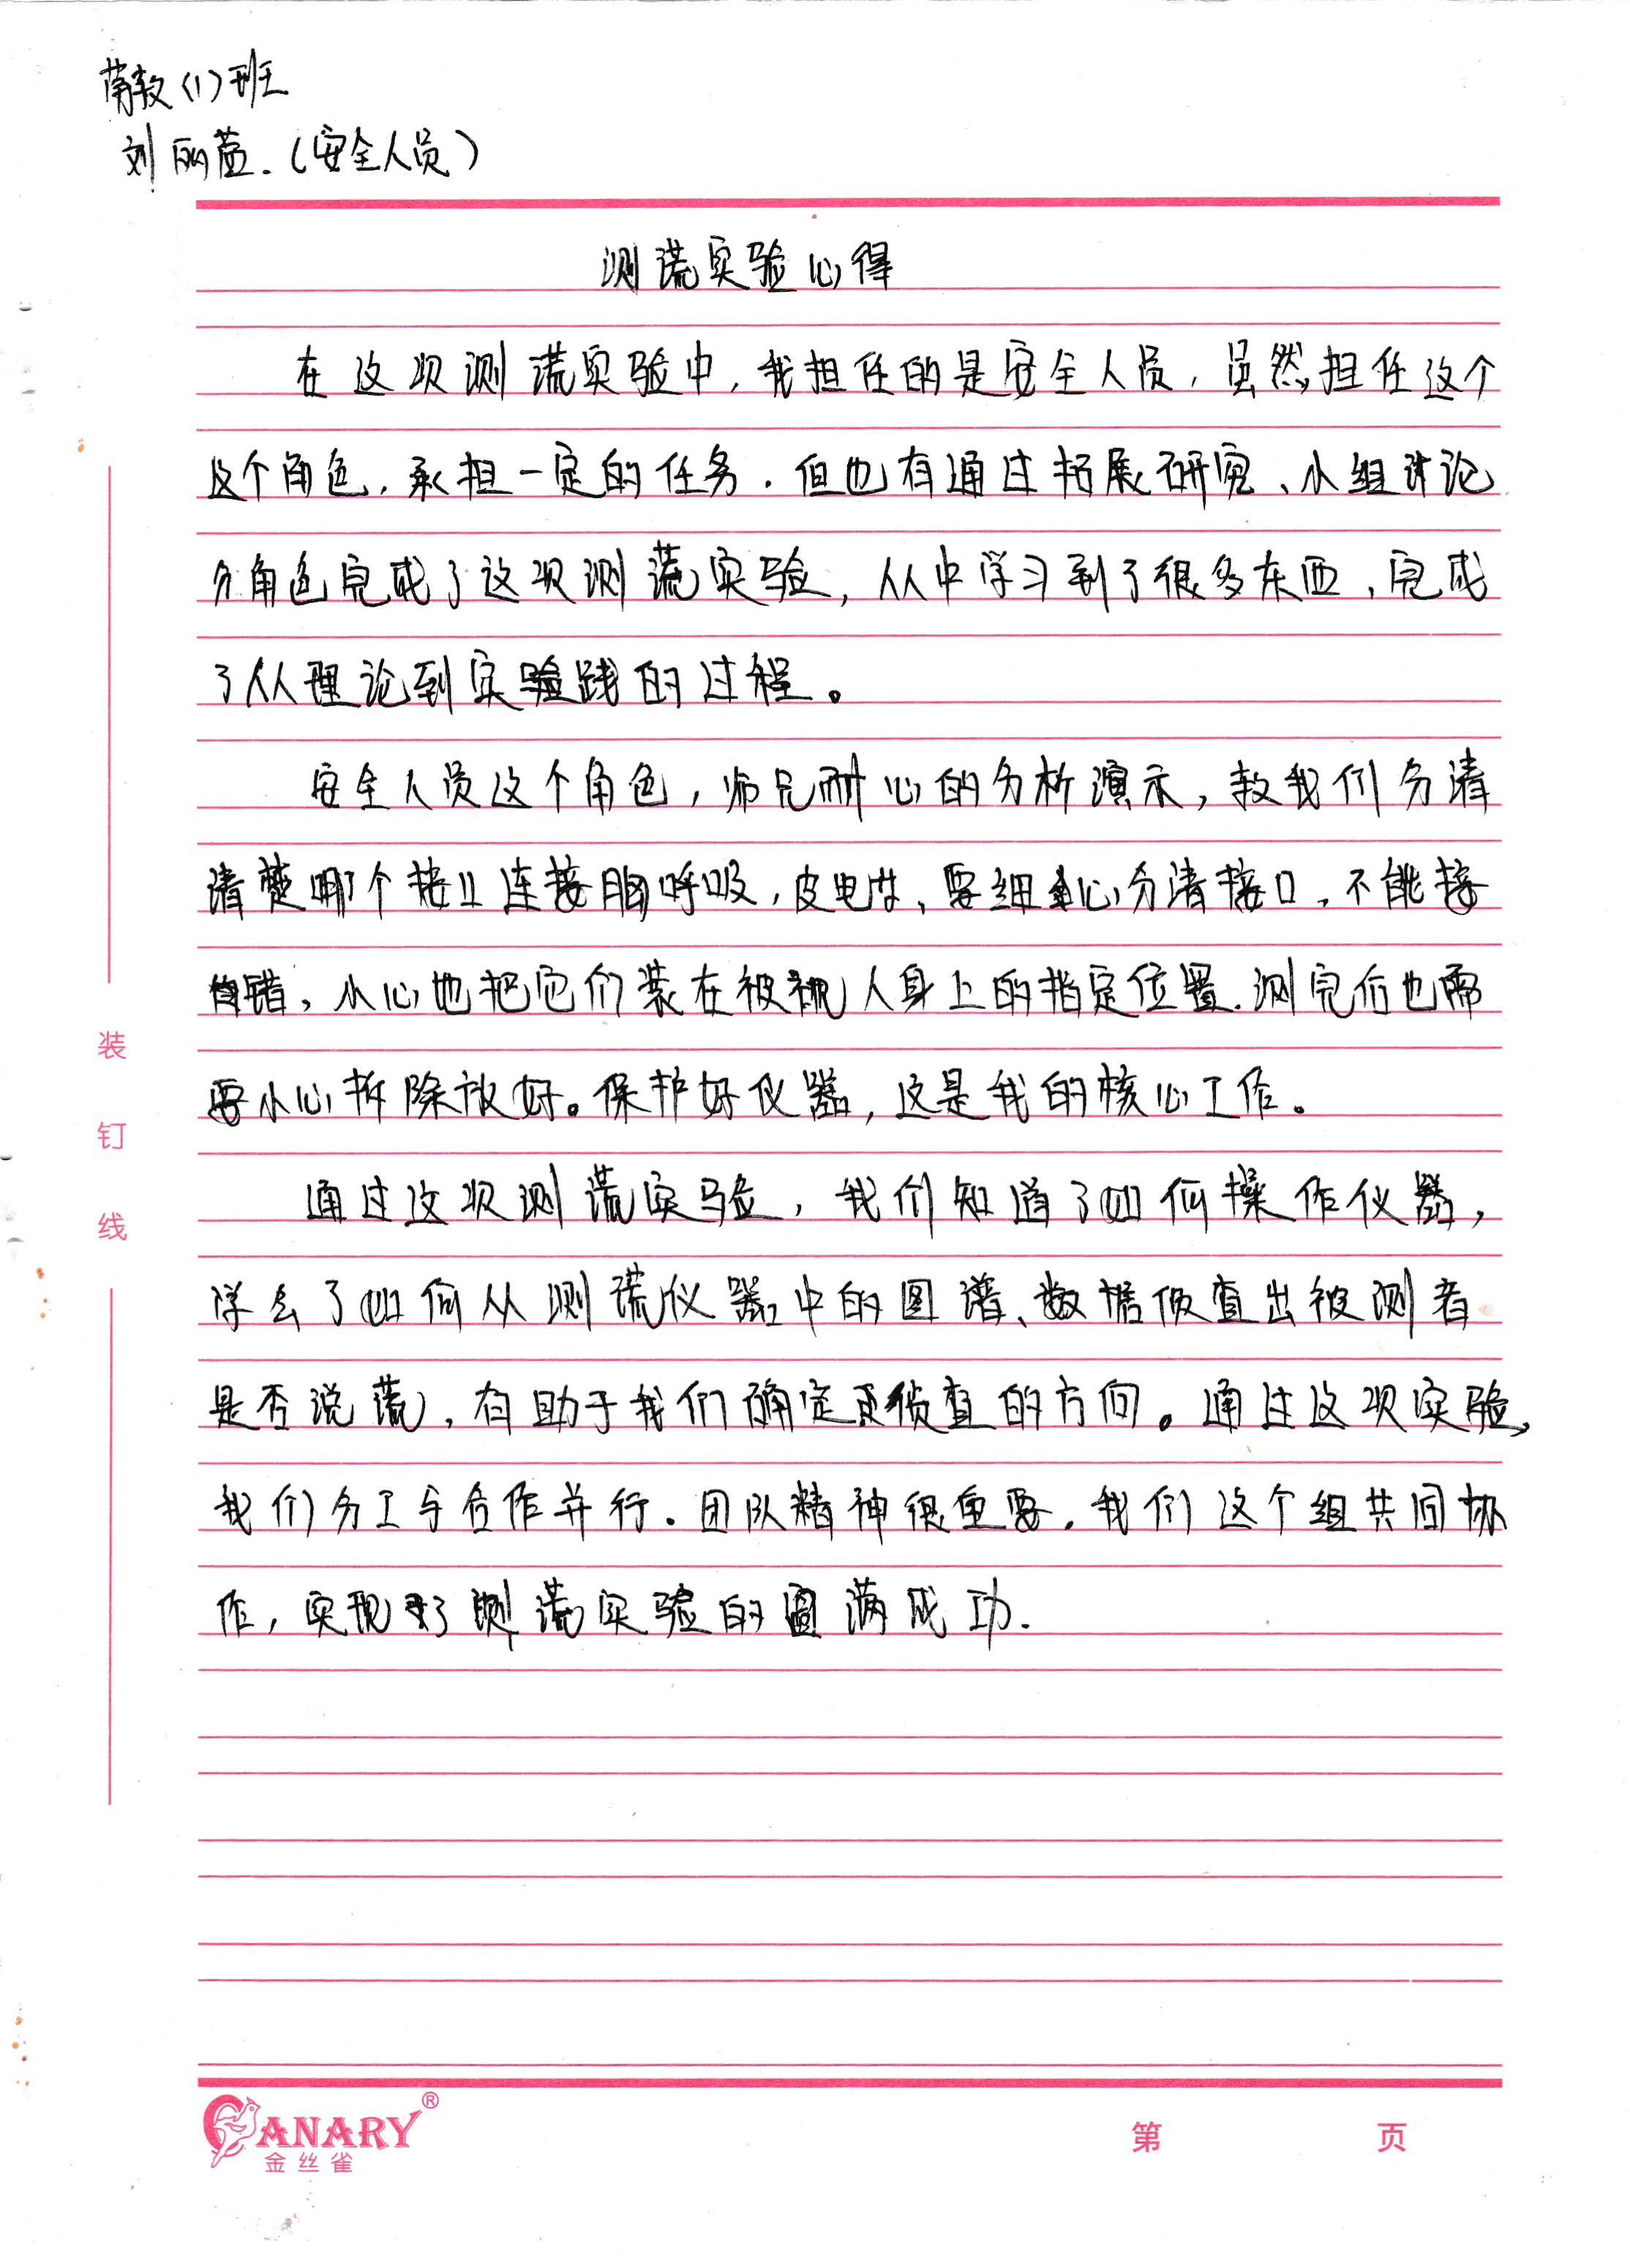 教(1)班
刘丽萱.(安全人员)
测谎实验心得
在这项测谎实验中,我担任的是安全人员,虽然担任这个
这个角色,承担一定的任务.但也有通过拓展研究、小组讨论
分角色完成了这项测谎实验,从中学习到了很多东西,完成
了从理论到实践的过程。
安全人员这个角色,师兄耐心的分析演示,教我们分清
清楚哪个接口连接胸呼吸,皮电,要细心分清接口,不能接
错,小心地把它们装在被测人身上的指定位置.测完后也需
要小心拆除放好。保护好仪器,这是我的核心工作。
通过这项测谎实验,我们知道了如何操作仪器,
学会了如何从测谎仪器中的图谱、数据侦查出被测者
是否说谎,有助于我们确定侦查的方向。通过这项实验,
我们分工与合作并行.团队精神很重要,我们这个组共同协
作,实现了测谎实验的圆满成功.
装
钉
线
CANARY®
金丝雀
第 页